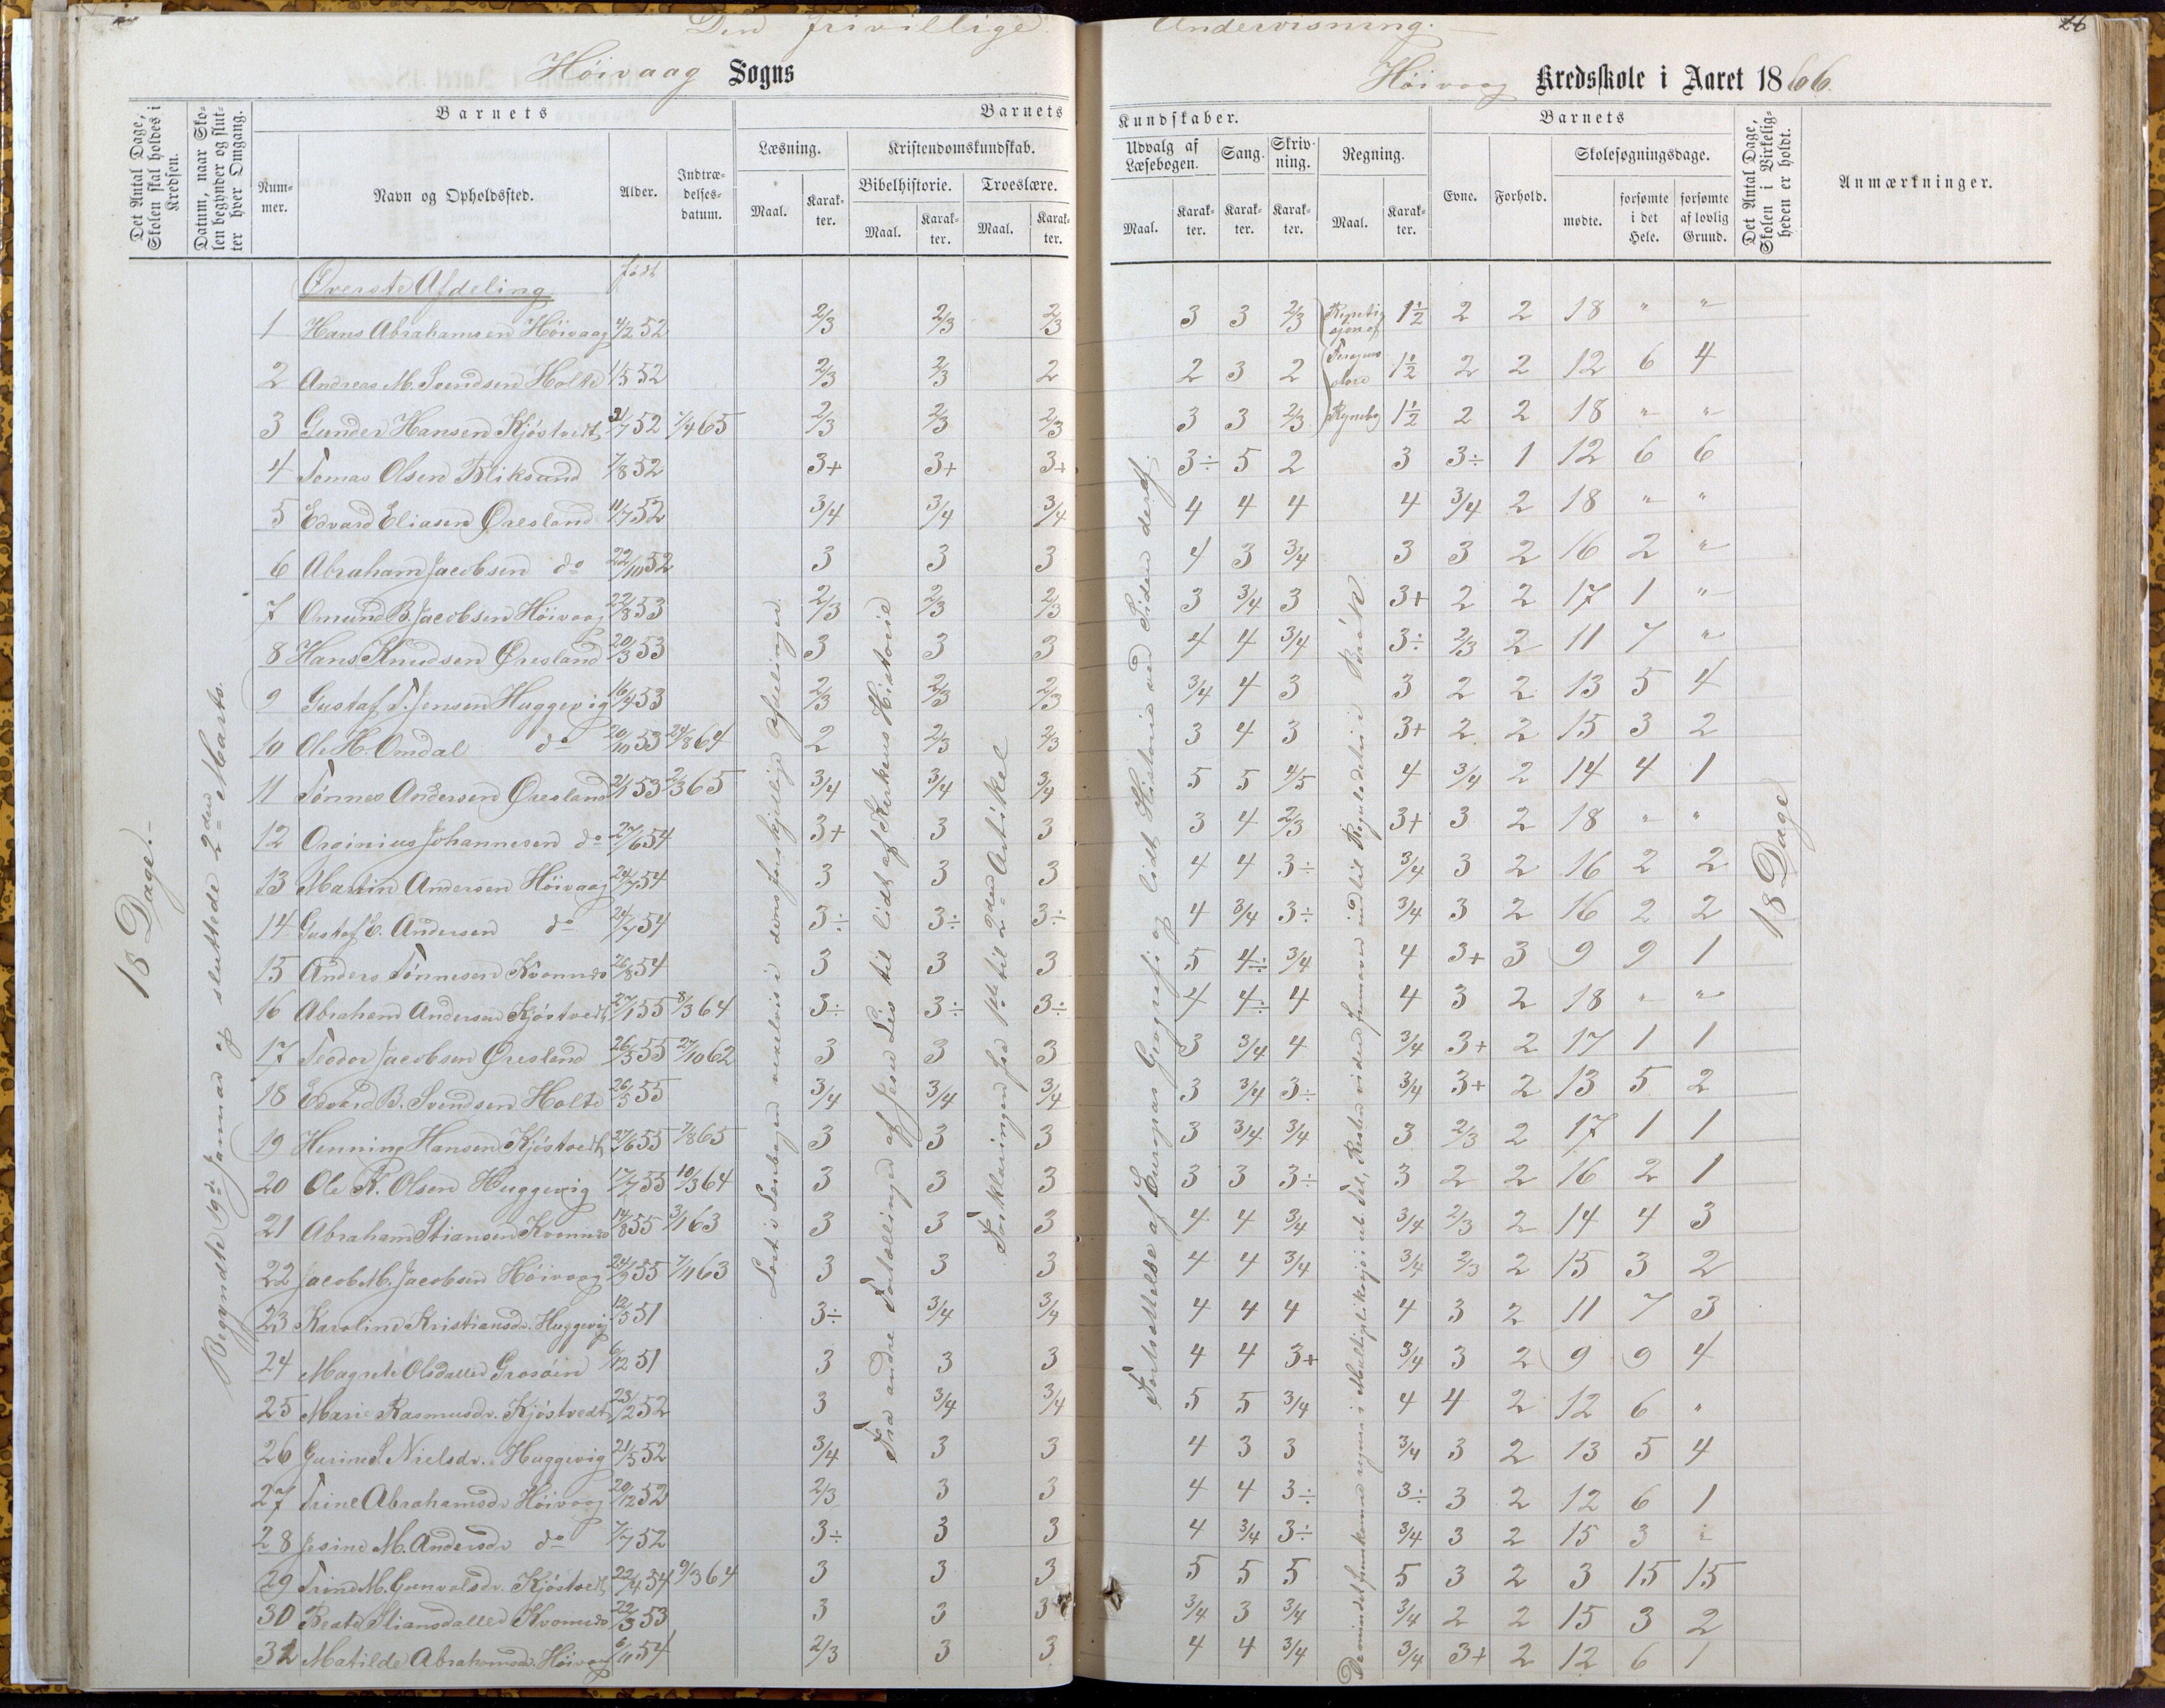 Den frivillige Undervisning.
26
Höivaag Sogns Höivaag Kredsskole i Aaret 1866.
Det Antal Dage, Skolen skal holdes i Kredsen.
Datum, naar Skolen begynder og slutter hver Omgang.
Barnets Barnets Kundskaber. Barnets
Det Antal Dage, Skolen i Virkeligheden er holdt.
Anmærkninger.
Nummer. Navn og Opholdssted. Alder. Indtrædelsesdatum.
Læsning. Kristendomskundskab. Udvalg af Læsebogen. Sang. Skrivning. Regning. Evne. Forhold. Skolesøgningsdage.
Bibelhistorie. Troeslære.
Maal. Karakter. Maal. Karakter. Maal. Karakter. Maal. Karakter. Karakter. Karakter. Maal. Karakter. mødte. forsømte i det Hele. forsømte af lovlig Grund.
18 Dage.
Begyndte 19de Januar og sluttede 2den Marts.
Fra andre Fortællinger af Jesu Liv til lidt af Kirkens Historie
Forklaringen fra 1ste til 2den Artikel
Fortsættelse af Europas Geografi og lidt Historie ved Siden deraf.
18 Dage
Øverste Afdeling født
1 Hans Abrahamsen Höivaag 4/2 52 2/3 2/3 2/3 3 3 2/3 1½ 2 2 18 " "
2 Andreas M. Svendsen Holte 1/5 52 2/3 2/3 2 2 3 2 1½ 2 2 12 6 4
3 Gunder Hansen Kjöstvedt 21/7 52 1/4 65 2/3 2/3 2/3 3 3 2/3 1½ 2 2 18 " "
4 Tomas Olsen Bliksund 7/8 52 3+ 3+ 3+ 3÷ 5 2 3 3÷ 1 12 6 6
5 Edvard Eliasen Øresland 11/7 52 3/4 3/4 3/4 4 4 4 4 3/4 2 18 " "
6 Abraham Jacobsen do 22/10 52 3 3 3 4 3 3/4 3 3 2 16 2 "
7 Omund B. Jacobsen Höivaag 22/3 53 2/3 2/3 2/3 3 3/4 3 3+ 2 2 17 1 "
8 Hans Knudsen Øresland 20/3 53 3 3 3 4 4 3/4 3÷ 2/3 2 11 7 "
9 Gustaf T. Jensen Huggevig 16/4 53 2/3 2/3 2/3 3/4 4 3 3 2 2 13 5 4
10 Ole H. Omdal do 20/10 53 24/8 64 2 2/3 2/3 3 4 3 3+ 2 2 15 3 2
11 Tönnes Andersen Øresland 21/1 53 2/3 65 3/4 3/4 3/4 5 5 4/5 4 3/4 2 14 4 1
12 Johannesen do 27/6 54 3+ 3 3 3 4 2/3 3+ 3 2 18 " "
13 Martin Andersen Höivaag 24/7 54 3 3 3 4 4 3÷ 3/4 3 2 16 2 2
14 Gustaf E. Andersen do 24/7 54 3÷ 3÷ 3÷ 4 3/4 3÷ 3/4 3 2 16 2 2
15 Anders Tönnesen Kvennes 26/8 54 3 3 3 5 4÷ 3/4 4 3+ 3 9 9 1
16 Abraham Andersen Kjöstvedt 27/1 55 8/3 64 3÷ 3÷ 3÷ 4 4÷ 4 4 3 2 18 " "
17 Teodor Jacobsen Øresland 26/3 55 27/10 62 3 3 3 3 3/4 4 3/4 3+ 2 17 1 1
18 Edvard B. Svendsen Holte 26/5 55 3/4 3/4 3/4 3 3/4 3÷ 3/4 3+ 2 13 5 2
19 Henning Hansen Kjöstvedt 27/6 55 7/8 65 3 3 3 3 3/4 3/4 3 2/3 2 17 1 1
20 Ole K. Olsen Huggevig 17/7 55 10/3 64 3 3 3 3 3 3÷ 3 2 2 16 2 1
21 Abraham Stiansen Kvennes 14/8 55 3/1 63 3 3 3 4 4 3/4 3/4 2/3 2 14 4 3
22 Jacob M. Jacobsen Höivaag 24/9 55 7/1 63 3 3 3 4 4 3/4 3/4 2/3 2 15 3 2
23 Karoline Kristiansdr. Huggevig 12/5 51 3÷ 3/4 3/4 4 4 4 4 3 2 11 7 3
24 Magrete Olsdatter Grosöien 6/12 51 3 3 3 4 4 3+ 3/4 3 2 9 9 4
25 Marie Rasmusdr. Kjöstvedt 23/2 52 3 3/4 3/4 5 5 3/4 4 4 2 12 6 "
26 Gurine S. Nielsdr. Huggevig 21/5 52 3/4 3 3 4 3 3 3/4 3 2 13 5 4
27 Trine Abrahamsdr. Höivaag 20/12 52 2/3 3 3 4 4 3÷ 3÷ 3 2 12 6 1
28 Jesine M. Andersdr do 7/7 52 3÷ 3 3 4 3/4 3÷ 3/4 3 2 15 3 "
29 Trine M. Gunvalsdr. Kjöstvedt 22/4 54 9/3 64 3 3 3 5 5 5 5 3 2 3 15 15
30 Beate Stiansdatter Kvennes 22/3 53 3 3 3 3/4 3 3/4 3/4 2 2 15 3 2
31 Matilde Abrahamsdr. Höivaag 6/11 54 2/3 3 3 4 4 3/4 3/4 3+ 2 12 6 1